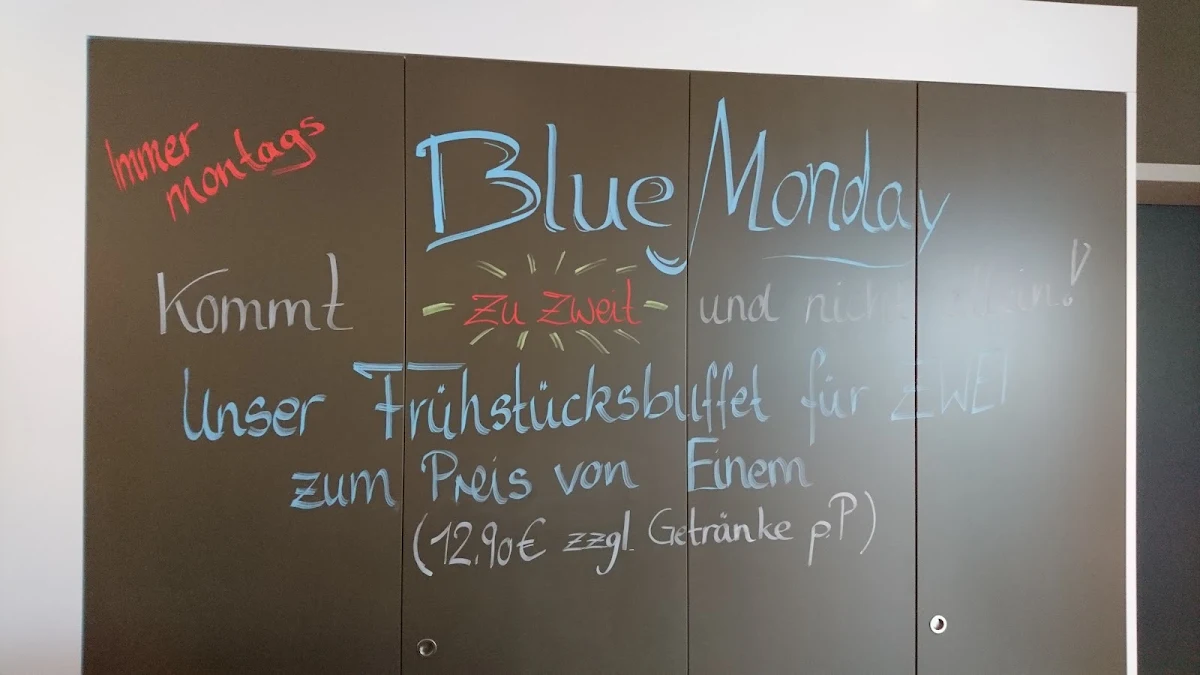 Immer
montags
Blue Monday
Kommt zu zweit und nicht allein!
Unser Frühstücksbuffet für ZWEI
zum Preis von Einem
(12,90€ zzgl. Getränke p.P)